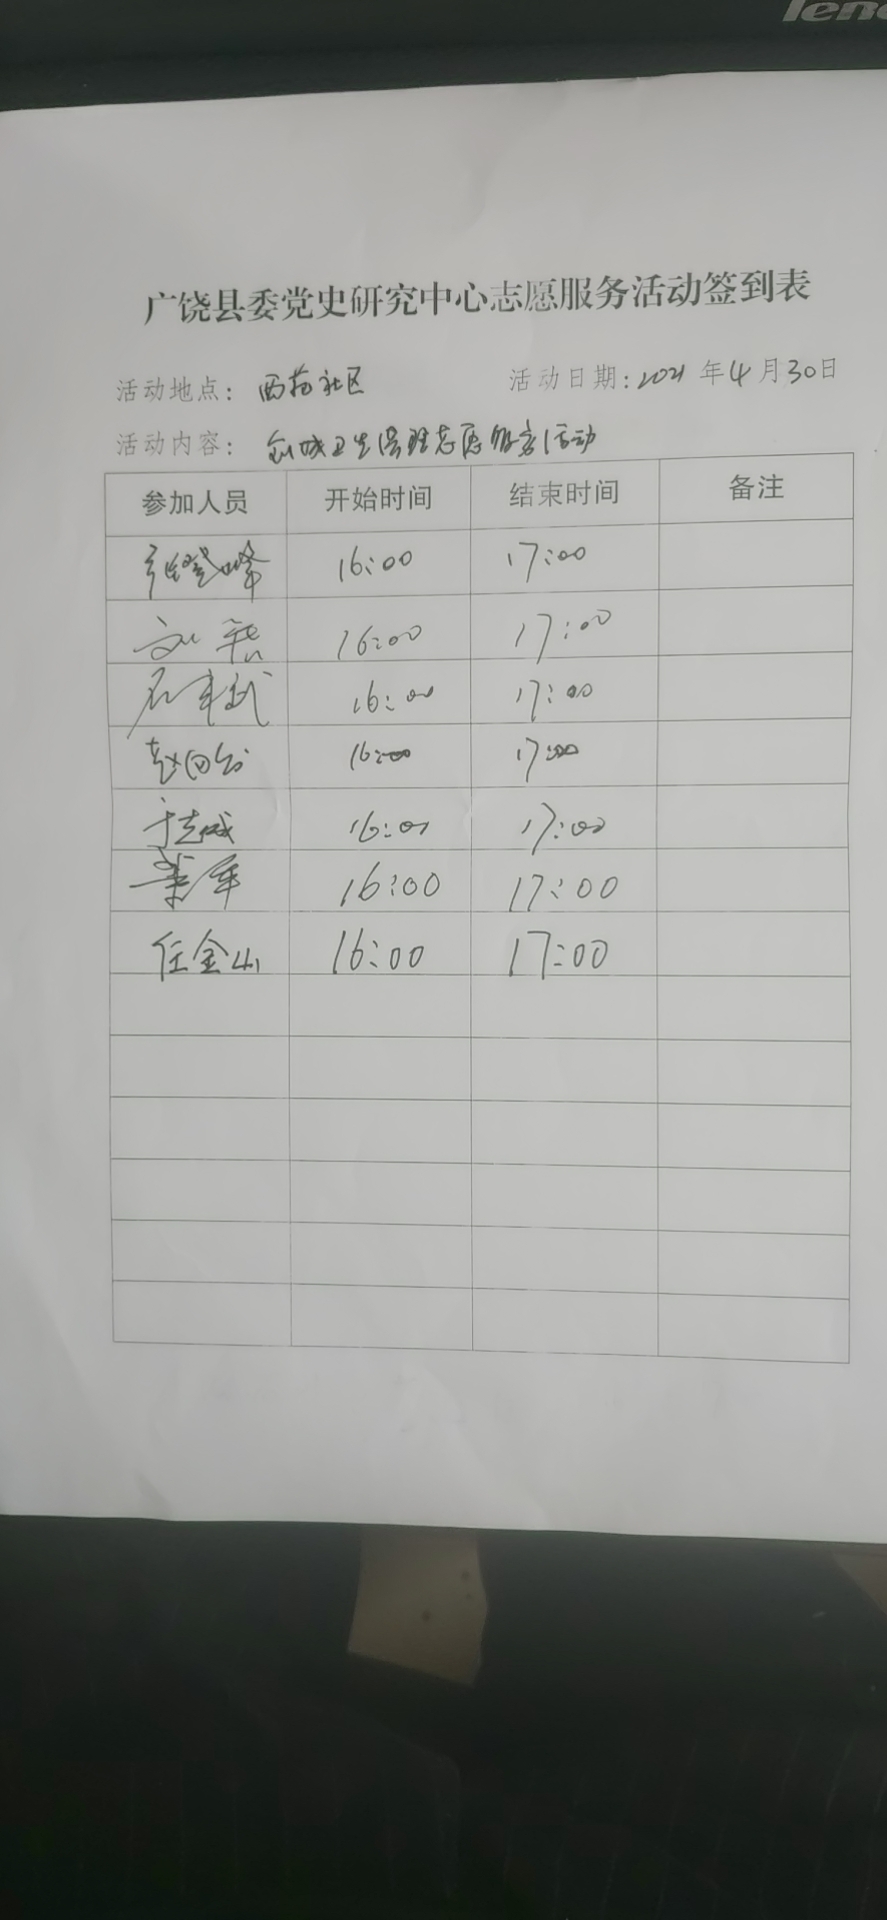 leno
广饶县委党史研究中心志愿服务活动签到表
活动地点：西苑社区 活动日期：2021年4月30日
活动内容：创城卫生清理志愿服务活动
参加人员 开始时间 结束时间 备注
张登峰 16:00 17:00
刘 16:00 17:00
石 16:00 17:00
赵 16:00 17:00
于志成 16:00 17:00
军 16:00 17:00
任金山 16:00 17:00